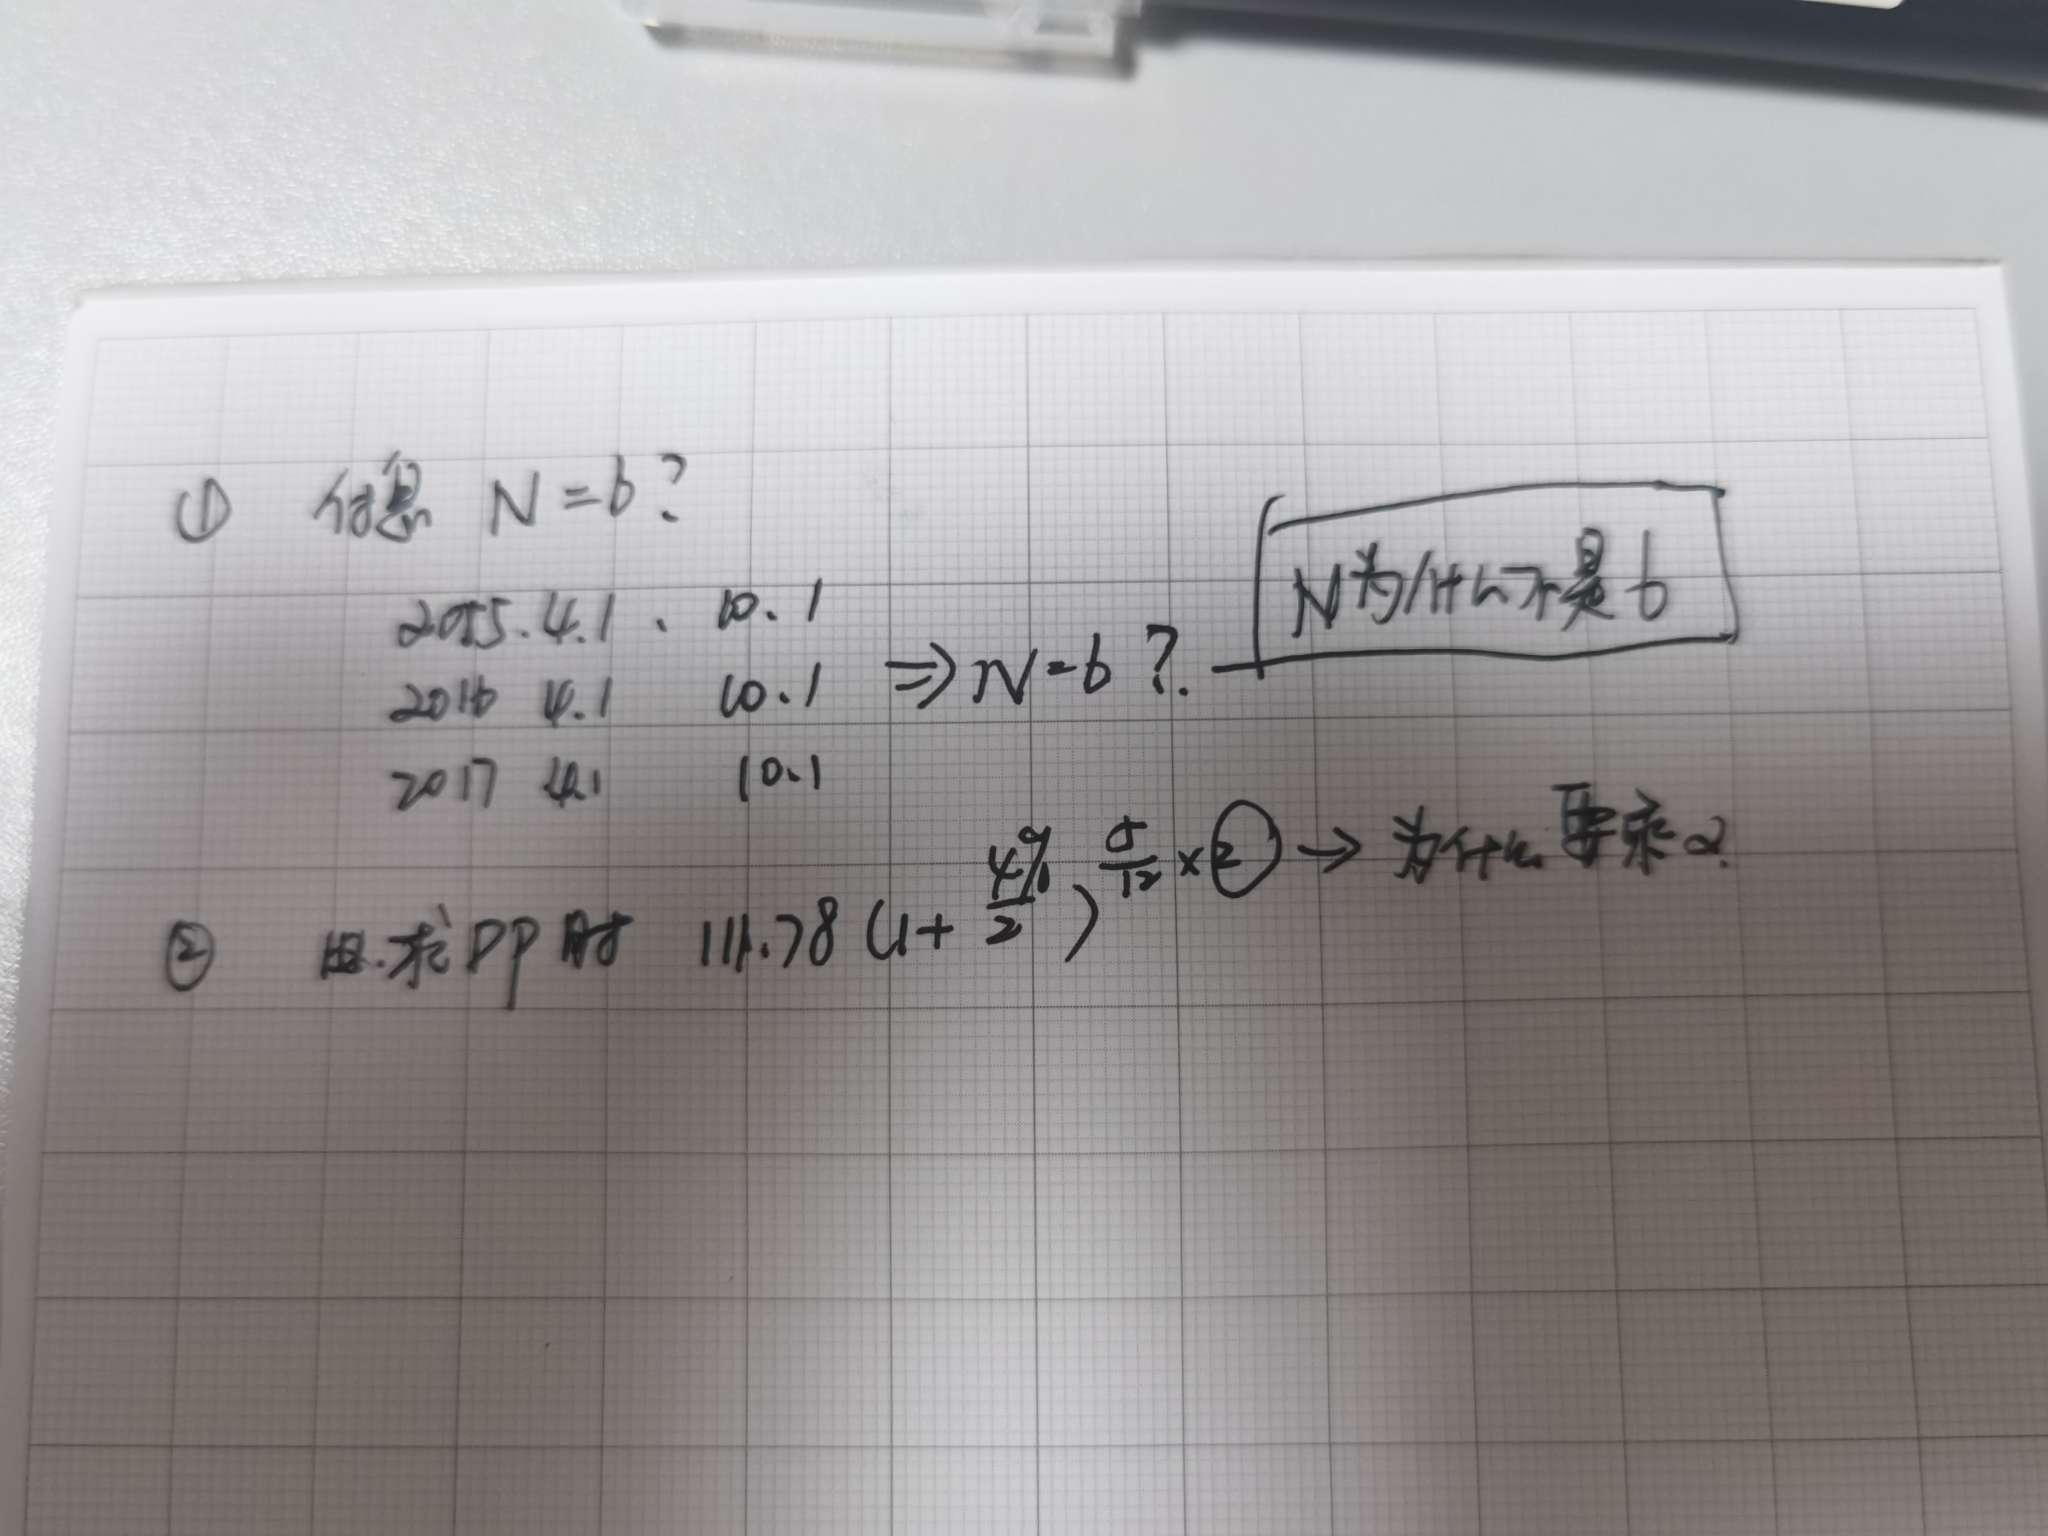 ① 付息 N=6?
2015.4.1、10.1
2016 4.1 10.1 ⇒ N=6?. N为什么不是6
2017 4.1 10.1
② 求DP时 111.78(1+4%/2)^(5/12×②) → 为什么要乘2.